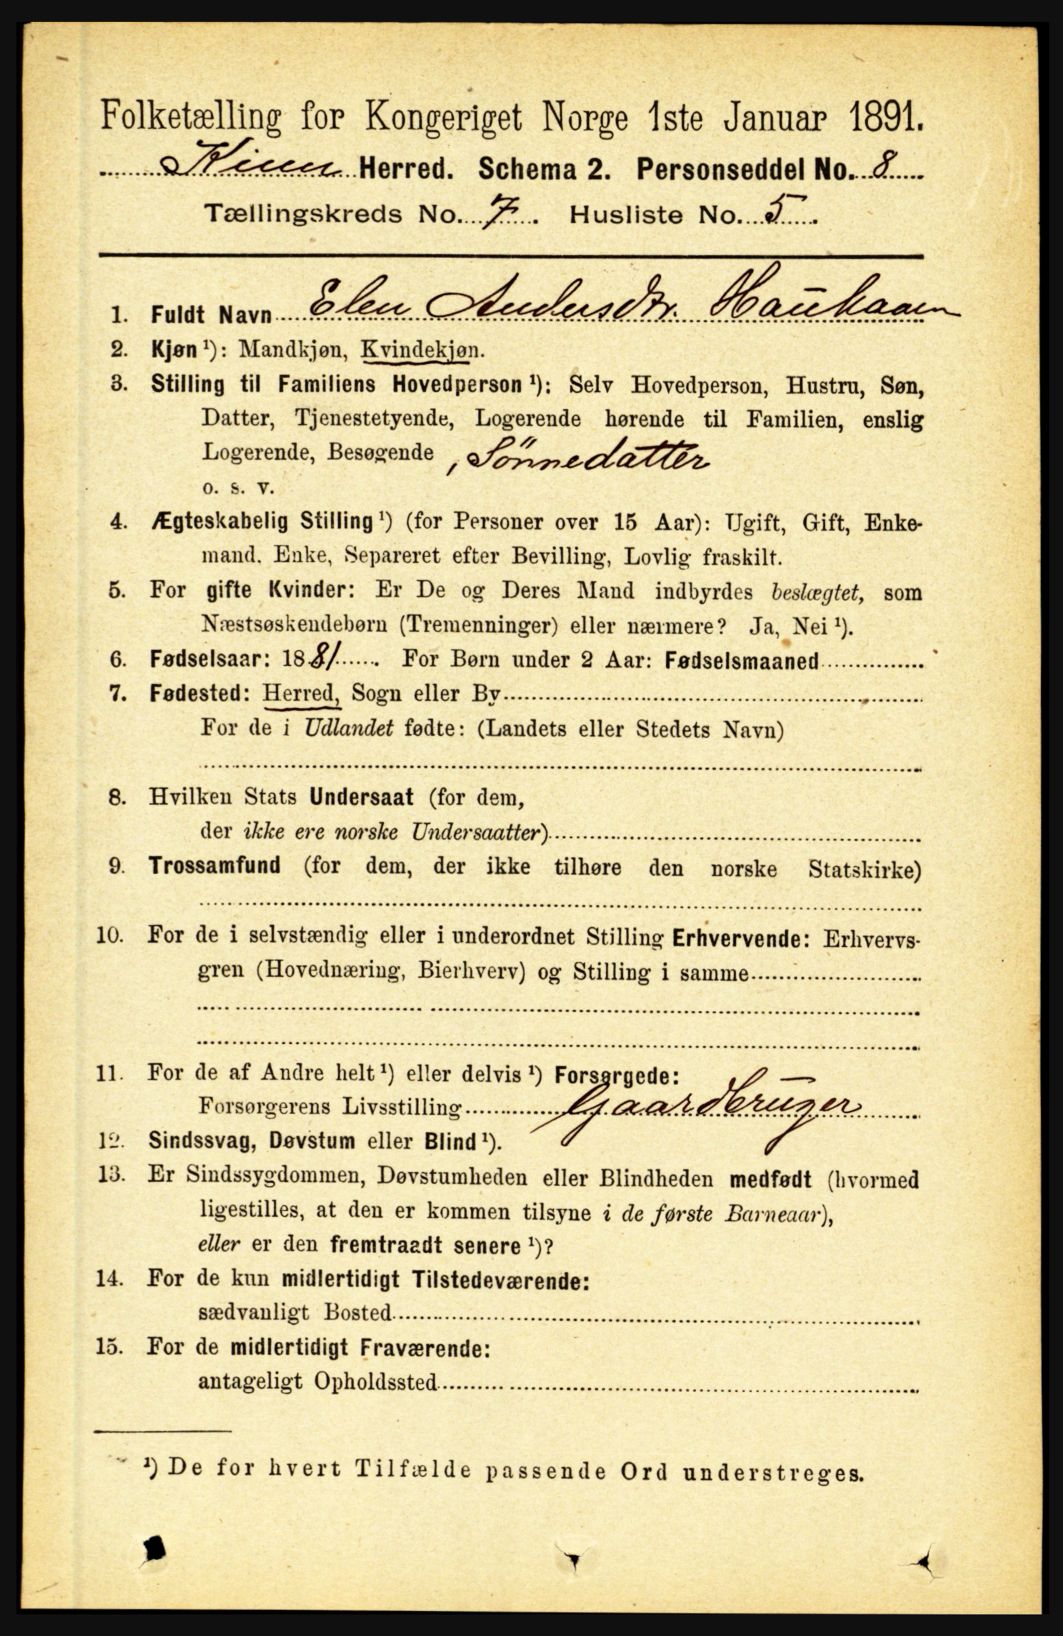 Folketælling for Kongeriget Norge 1ste Januar 1891.
Kinn Herred. Schema 2. Personseddel No. 8
Tællingskreds No. 7. Husliste No. 5.
1. Fuldt Navn Elen Andersdtr. Hauhaaen
2. Kjøn ¹): Mandkjøn, Kvindekjøn.
3. Stilling til Familiens Hovedperson ¹): Selv Hovedperson, Hustru, Søn,
Datter, Tjenestetyende, Logerende hørende til Familien, enslig
Logerende, Besøgende, Sönnedatter
o. s. v.
4. Ægteskabelig Stilling ¹) (for Personer over 15 Aar): Ugift, Gift, Enke-
mand, Enke, Separeret efter Bevilling, Lovlig fraskilt.
5. For gifte Kvinder: Er De og Deres Mand indbyrdes beslægtet, som
Næstsøskendebørn (Tremenninger) eller nærmere? Ja, Nei ¹).
6. Fødselsaar: 1881. For Børn under 2 Aar: Fødselsmaaned
7. Fødested: Herred, Sogn eller By
For de i Udlandet fødte: (Landets eller Stedets Navn)
8. Hvilken Stats Undersaat (for dem,
der ikke ere norske Undersaatter)
9. Trossamfund (for dem, der ikke tilhøre den norske Statskirke)
10. For de i selvstændig eller i underordnet Stilling Erhvervende: Erhvervs-
gren (Hovednæring, Bierhverv) og Stilling i samme
11. For de af Andre helt ¹) eller delvis ¹) Forsørgede:
Forsørgerens Livsstilling Gaardbruger
12. Sindssvag, Døvstum eller Blind ¹).
13. Er Sindssygdommen, Døvstumheden eller Blindheden medfødt (hvormed
ligestilles, at den er kommen tilsyne i de første Barneaar),
eller er den fremtraadt senere ¹)?
14. For de kun midlertidigt Tilstedeværende:
sædvanligt Bosted
15. For de midlertidigt Fraværende:
antageligt Opholdssted
¹) De for hvert Tilfælde passende Ord understreges.